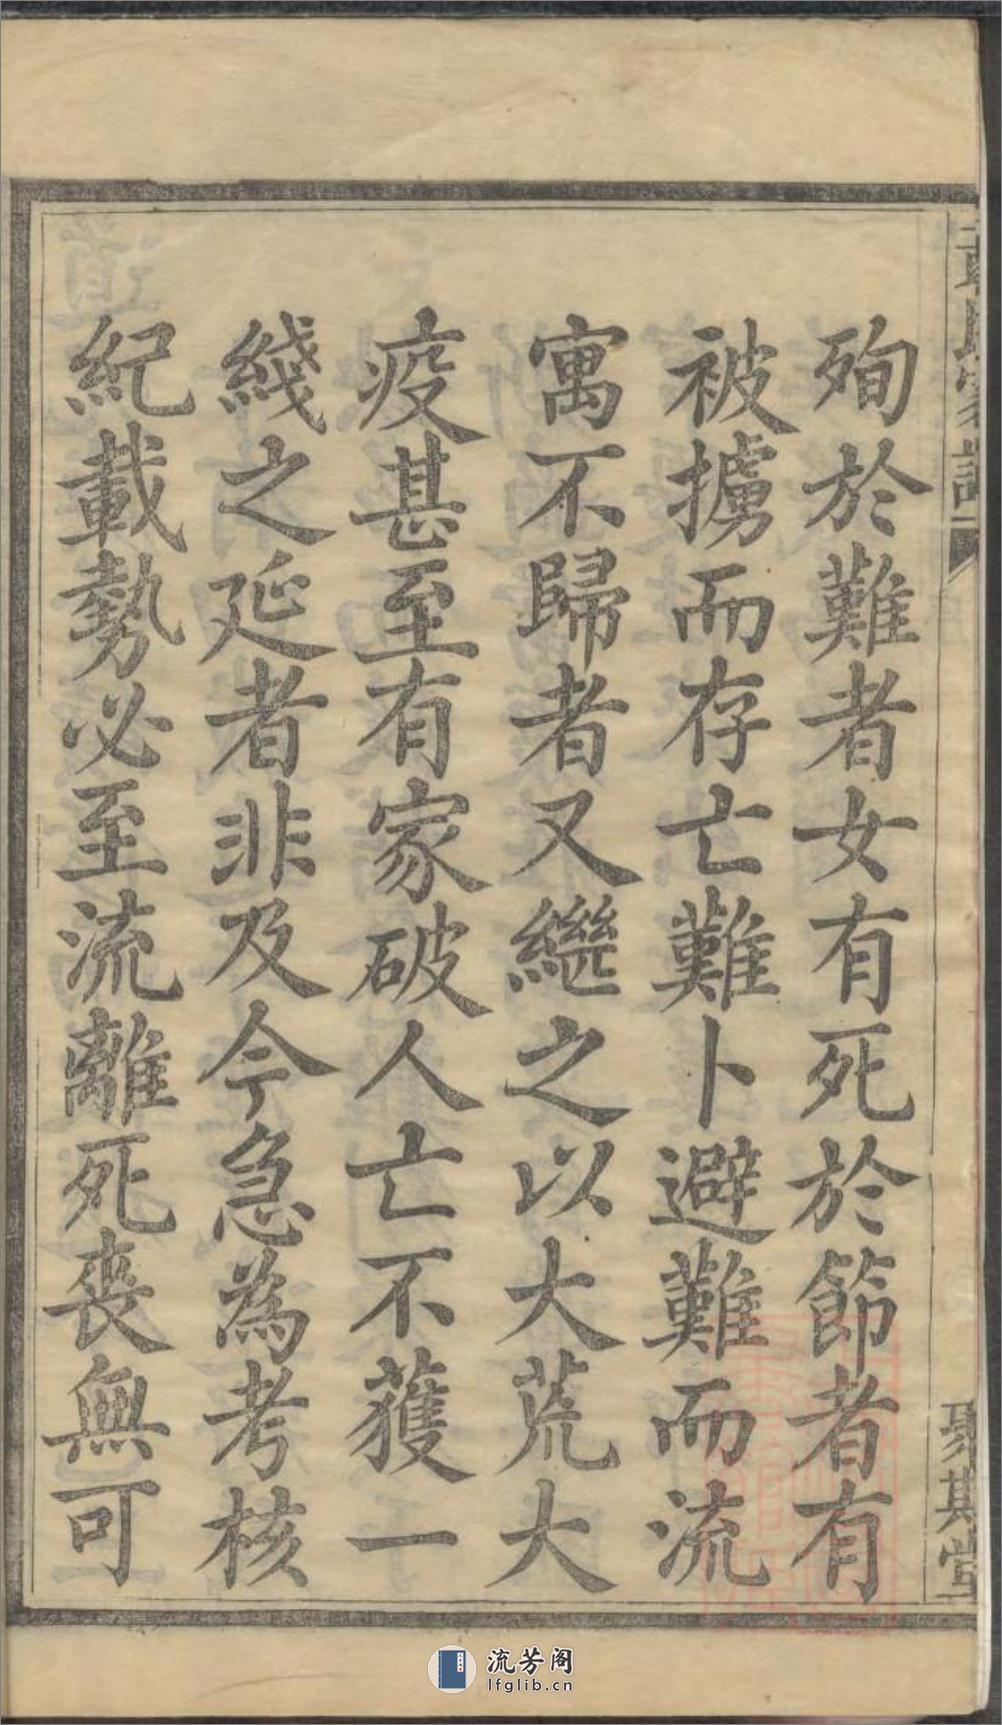 殉於難者女有死於節者有
被擄而存亡難卜避難而流
寓不歸者又繼之以大荒大
疫甚至有家破人亡不獲一
綫之延者非及今急為考核
紀載勢必至流離死喪無可
流芳阁
lfglib.cn